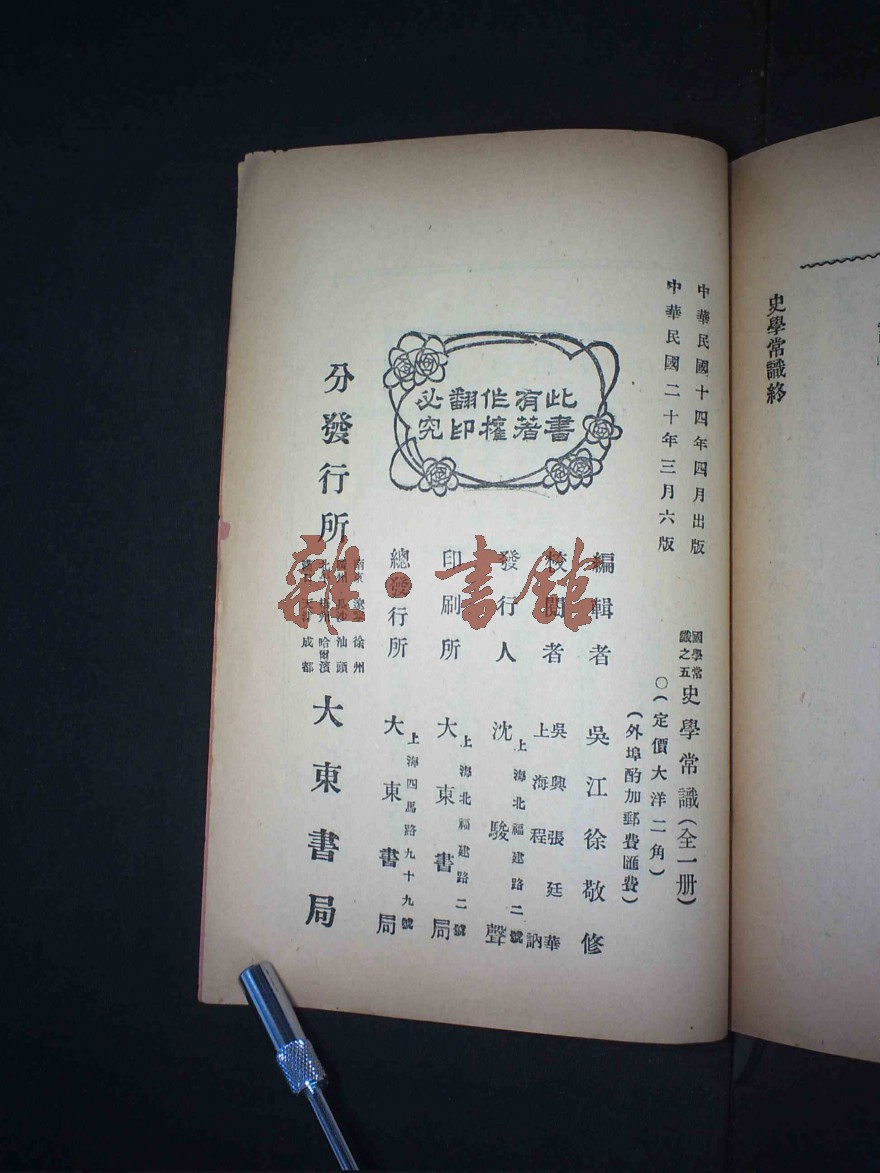 史學常識終
中華民國十四年四月出版
中華民國二十年三月六版
國學常識之五 史學常識(全一册)
○(定價大洋二角)
(外埠酌加郵費匯費)
此書有著作權翻印必究
編輯者 吳江徐敬修
校閱者 吳興張廷華 上海程訥
發行人 沈駿聲
上海北福建路二號
印刷所 大東書局
上海北福建路二號
總發行所 大東書局
上海四馬路九十九號
分發行所 大東書局
徐州
汕頭
哈爾濱
成都
雜·書館